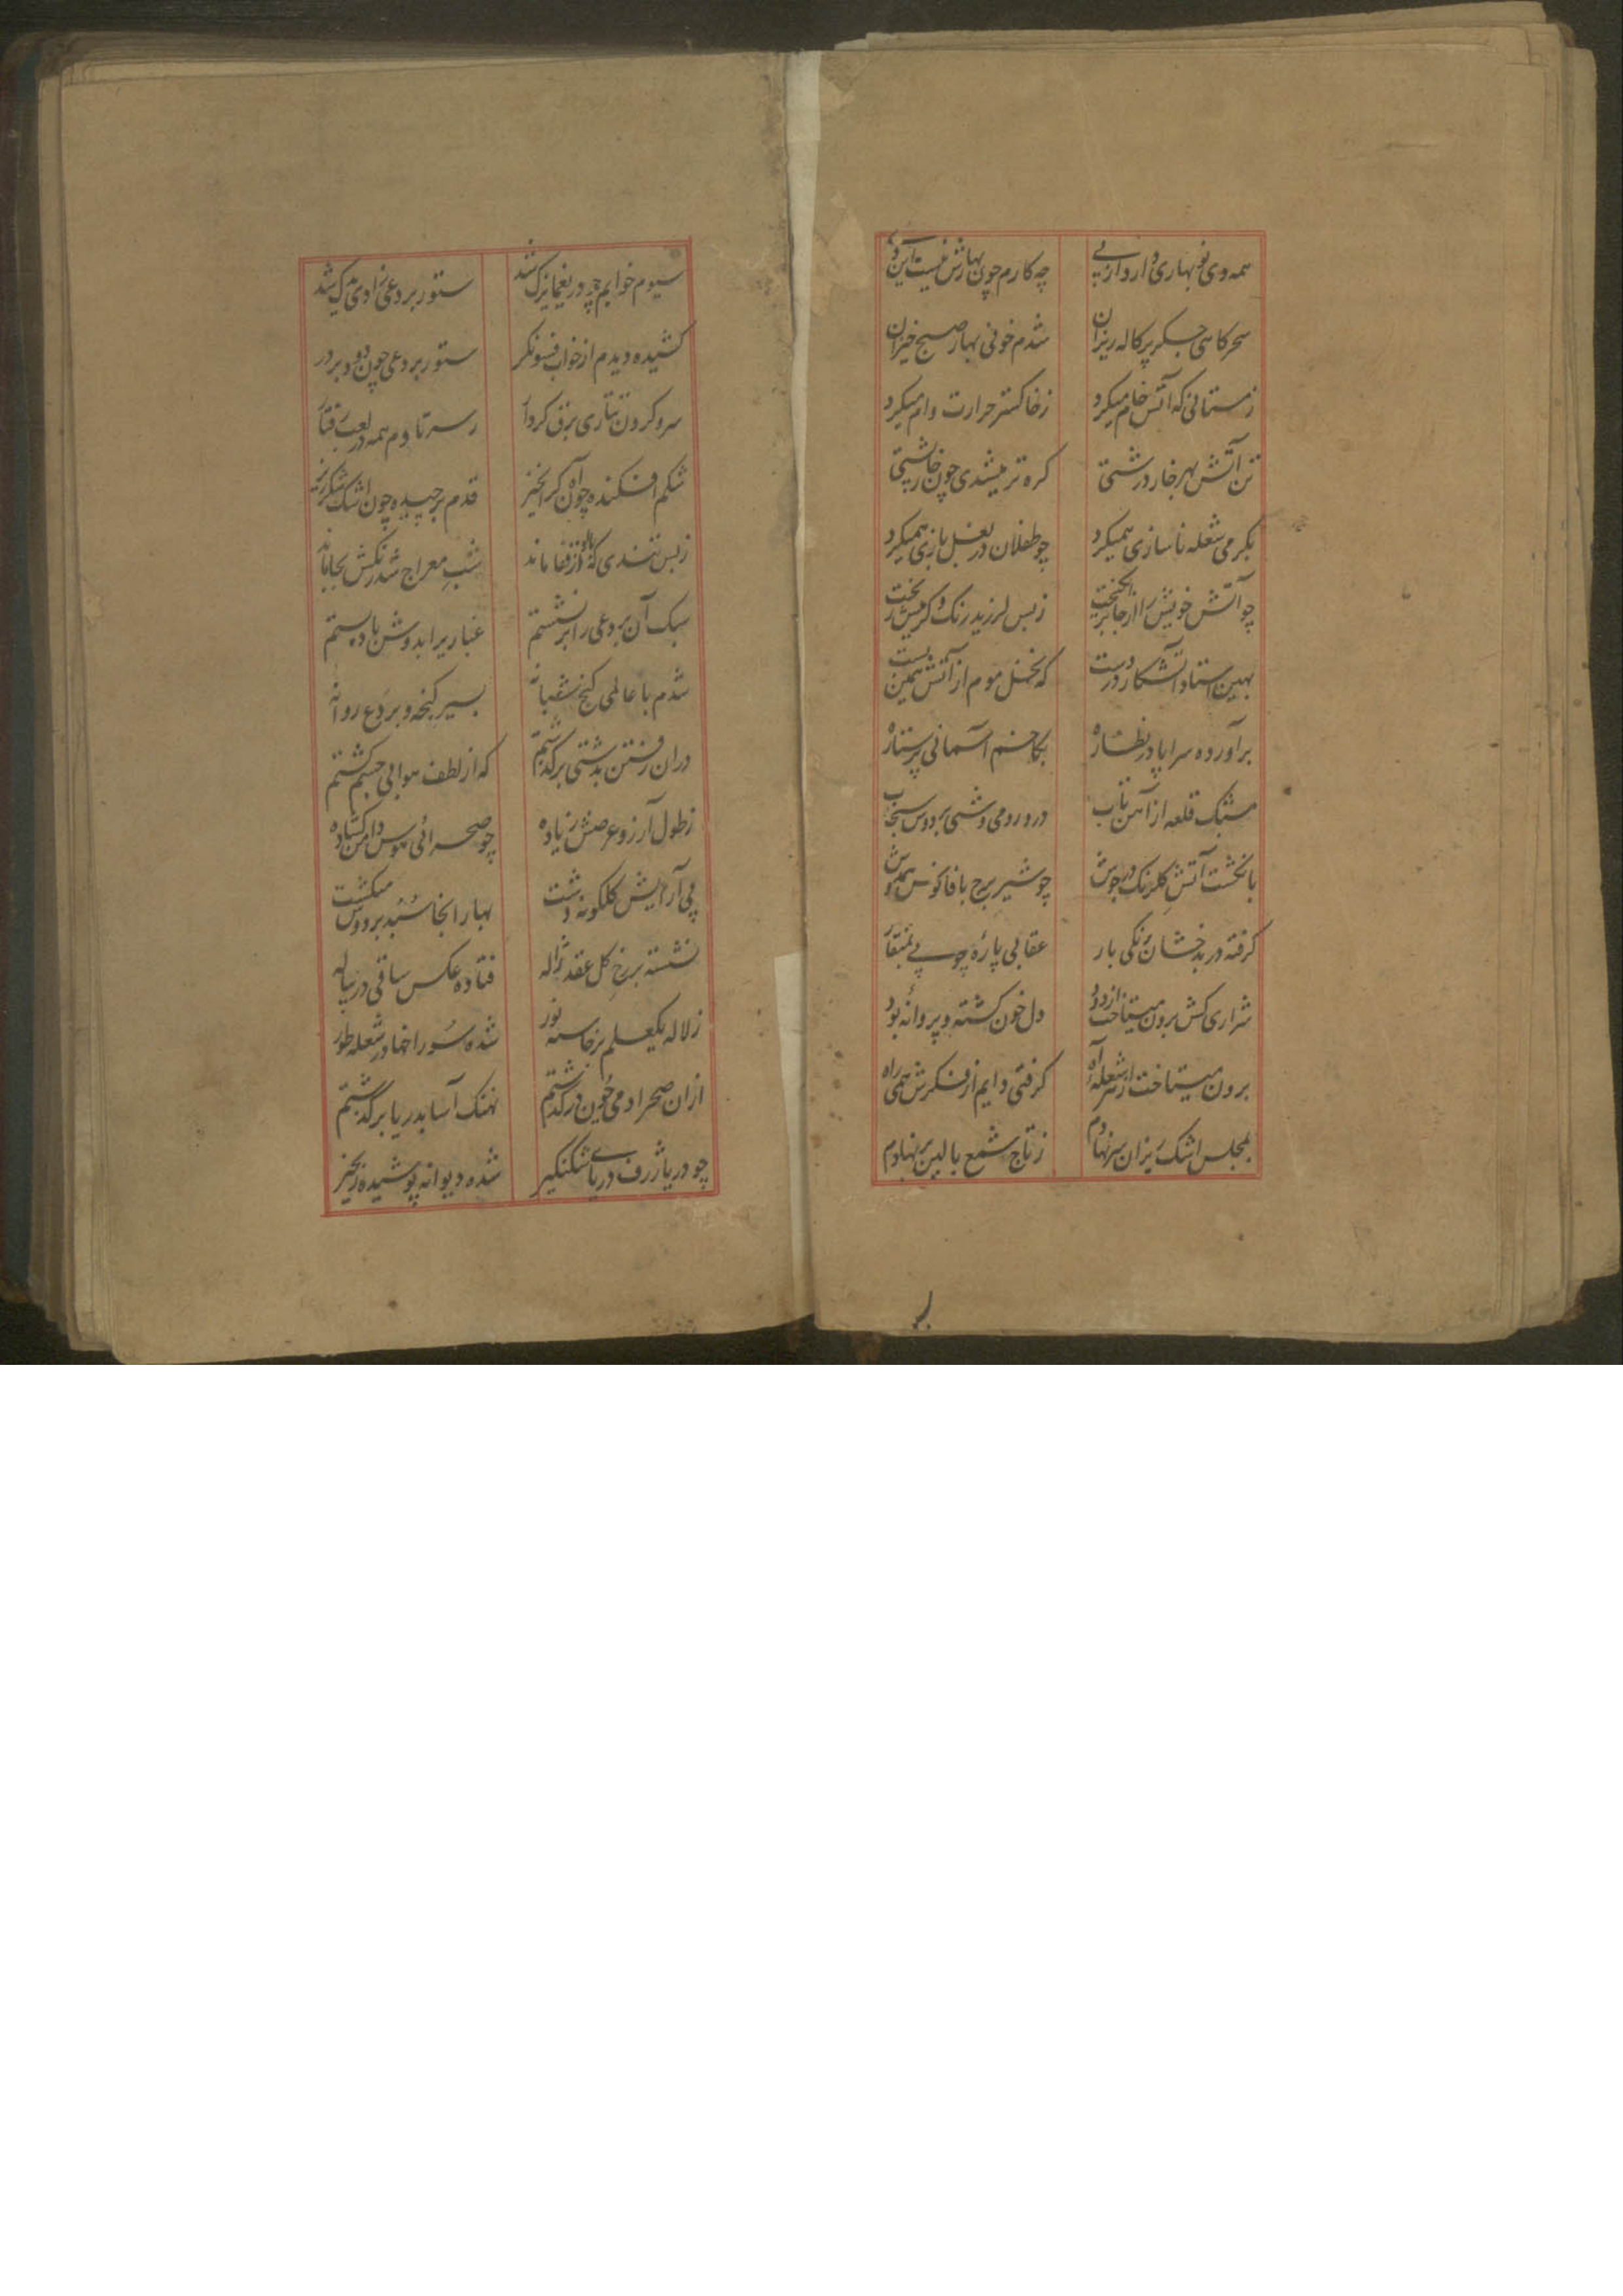 همه وی نو بهاری دارد از پی چه کارم چون بهارش نیست این دی
سحرکاهی جکر پرکاله ریزان شدم خونی بهار صبح خیزان
زمستانی که آتش خام میکرد زخاکستر حرارت وام میکرد
تن آتش بهر خار درشتی کره تر میشدی چون خارپشتی
بکرمی شعله ناسازی همیکرد چو طفلان در بغل بازی همیکرد
چو آتش خویش را از جا برانکیخت زبس لرزید رنک کرمیش ریخت
بهین استاد آتشکار درست که نخل موم از آتش همین بست
برآورده سراپا در نظاره بکاخم آسمانی پرستاره
مشبک قلعه از آهن ناب درو رومی وشی بر دوش سنجاب
بانکشت آتش کلرنک در جوش چو شیر برج با فانوس همدوش
کرفته در بدخشان زنکی بار عقابی پاره چوبی بمنقار
شراری کش برون میتاخت از دود دل خون کشته و پروانه بود
برون میتاخت از سر شعله آه کرفتی دایم از فکرش همی راه
بمجلس اشک ریزان سر نهادم زتاج شمع بالین بر نهادم
سیوم خوابم چو در یغما بزک شد ستور بردعی زادی یدک شد
کشیده دیدم از خواب فسونکر ستور بردعی چون دود بر در
سر و کردن تتاری برق کردار زسر تا دم همه در لعب رفتار
شکم افکنده چون آه کرانخیز قدم برچیده چون اشک شکرریز
زبس تندی که او از قفا ماند شب معراج شد رنکش بجا ماند
سبک آن بردعی را برنشستم غباریرا بدوش باد بستم
شدم با عالمی کنج شبانه بسیر کنجه و بردع روانه
در آن رفتن بدشتی برکذشتم که از لطف هوا بی جسم کشتم
زطول آرزو عرضش زیاده چو صحرائی هوس دامن کشاده
پی آرایش کلکونه دشت بهار آنجا سبد بر دوش میکشت
نشسته بر رخ کل عقد ژاله فتاده عکس ساقی در پیاله
زلاله یکعلم برخاسته نور شده سوراخها در شعله طور
از آن صحرا دمی چون درکذشتم نهنک آسا بدریا برکذشتم
چو دریا ژرف دریای شکنکیر شده دیوانه پوشیده زنجیر